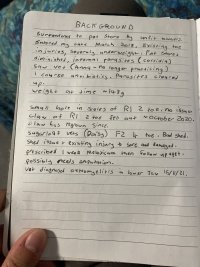 BACKGROUND
Surrendered to pet store by unfit owners
Entered my care March 2018. Existing tre
injuries, severely underweight. Fat stores
diminished, internal parasites (coccidia)
Saw vet (Anna - no longer practicing)
1 course antibiotics. Parasites cleared
up.
Weight at time 248g
Small nick in scales of R1 2 toe. No issue.
Claw of R1 2 toe fell out November 2020.
Claw has regrown since.
Sugarloaf vets (Daily) F2 4 toe. Bad shed.
Shed issue + existing injury to bone and damaged.
prescribed 1 week meloxicam then follow up apt
possibly needs amputation.
Vet diagnosed osteomyelitis in lower jaw 15/11/21.